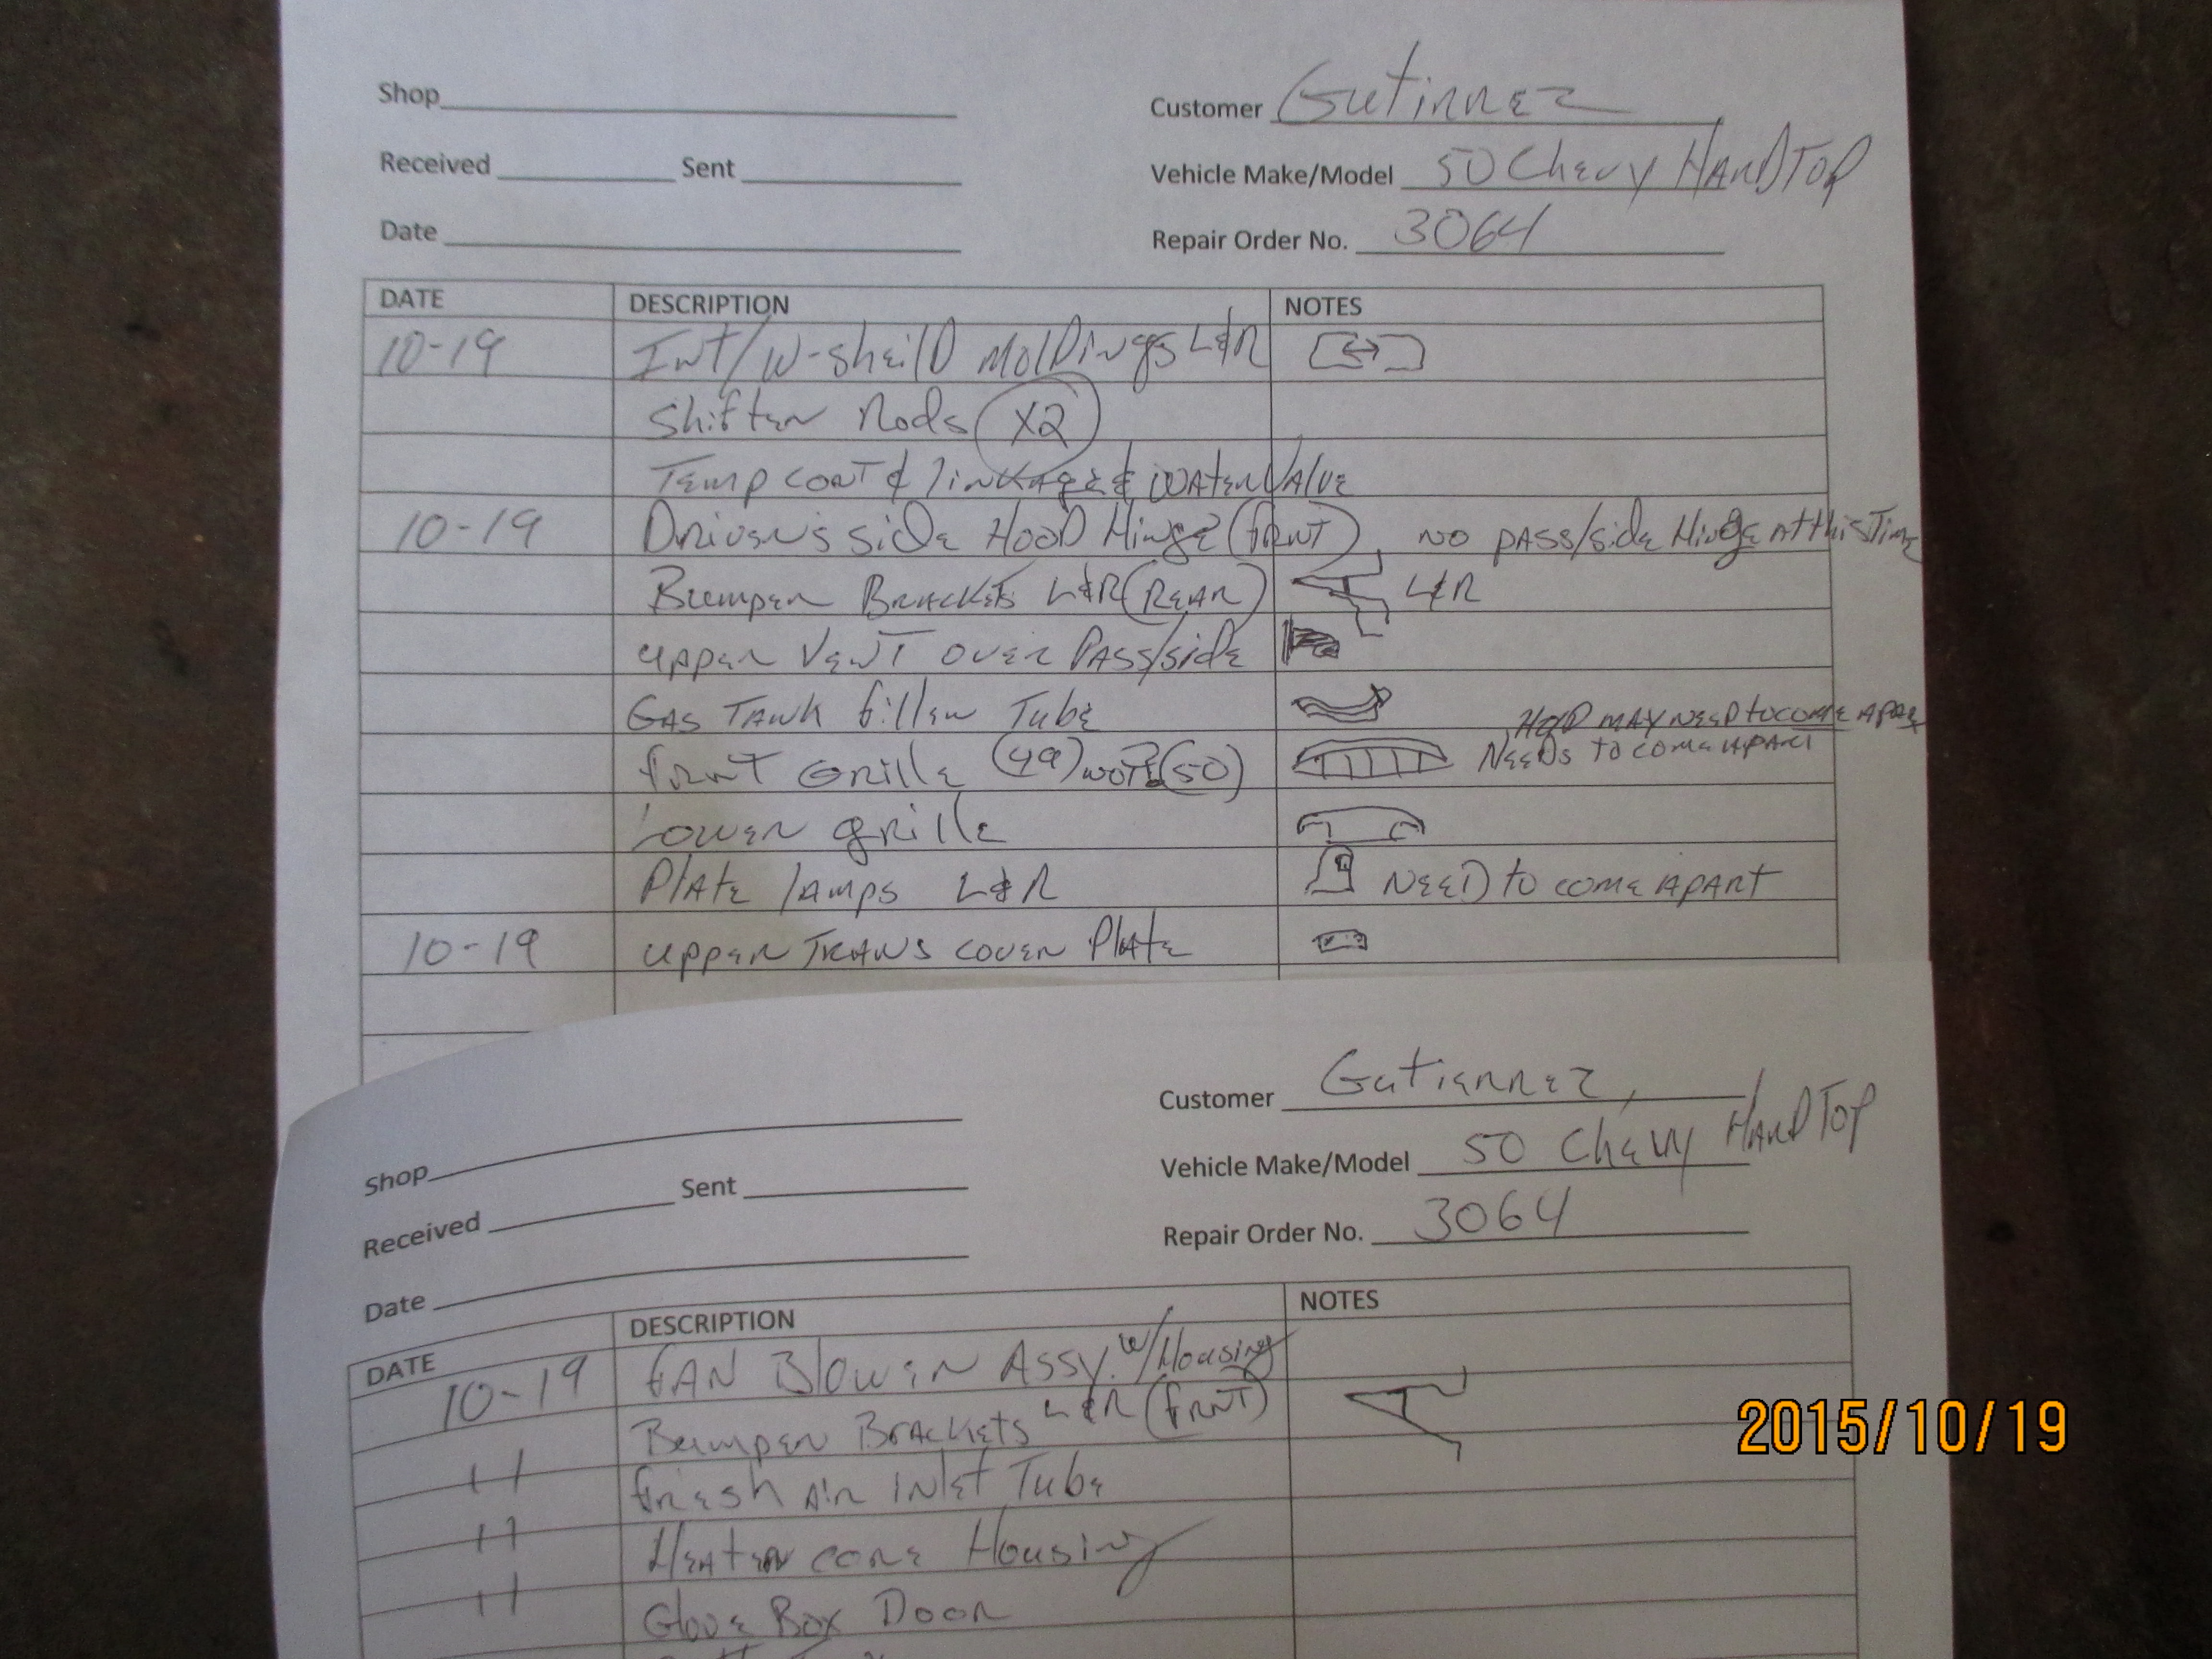 Shop
Customer Gutirrez
Received Sent
Vehicle Make/Model 50 Chevy HARDTOP
Date
Repair Order No. 3064
DATE DESCRIPTION NOTES
10-19 Int/W-sheilD MolDings L&R
Shifter Rods X2
Temp cont & linkage & water Valve
10-19 Driver's side HooD Hinge (frnt) No pass/side Hinge At this Time
Bumper Brackets L&R (Rear) L&R
upper Vent over Pass/side
Gas Tank filler Tube
HOLD MAY NEED to come APAR
frnt Grille (49) NOT (50) Needs to come APART
Lower grille
Plate lamps L&R NEED to come APART
10-19 upper TRANS cover Plate
Customer Gutierrez,
Shop
Vehicle Make/Model 50 Chevy HARDTOP
Received Sent
Repair Order No. 3064
Date
DATE DESCRIPTION NOTES
10-19 FAN Blower Assy. w/Housing
Bumper Brackets L&R (frnt)
11 fresh Air Inlet Tube
11 Heater core Housing
11 Glove Box Door
2015/10/19